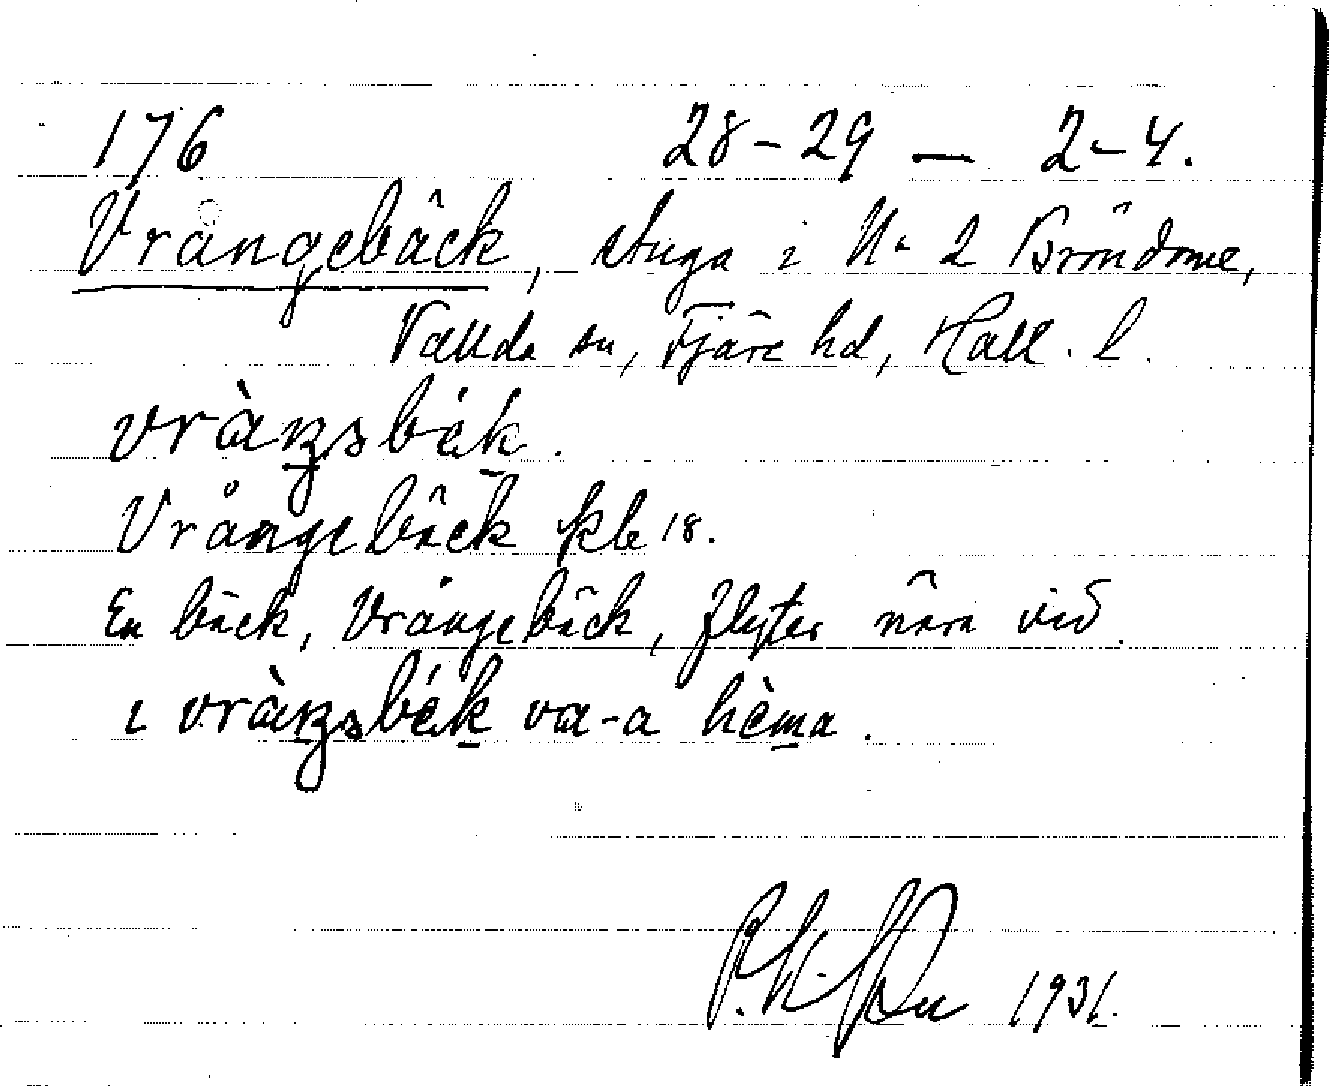 176 28-29 — 2-4.
Vrångebäck, stuga i N. 2 Bröndome,
Vallda sn, Fjäre hd, Hall. l.
vràŋəbék.
Vrångebäck kb 18.
En bäck, Vrångebäck, flyter nära vid.
ı vràŋəbék va-a hèma.
1931.